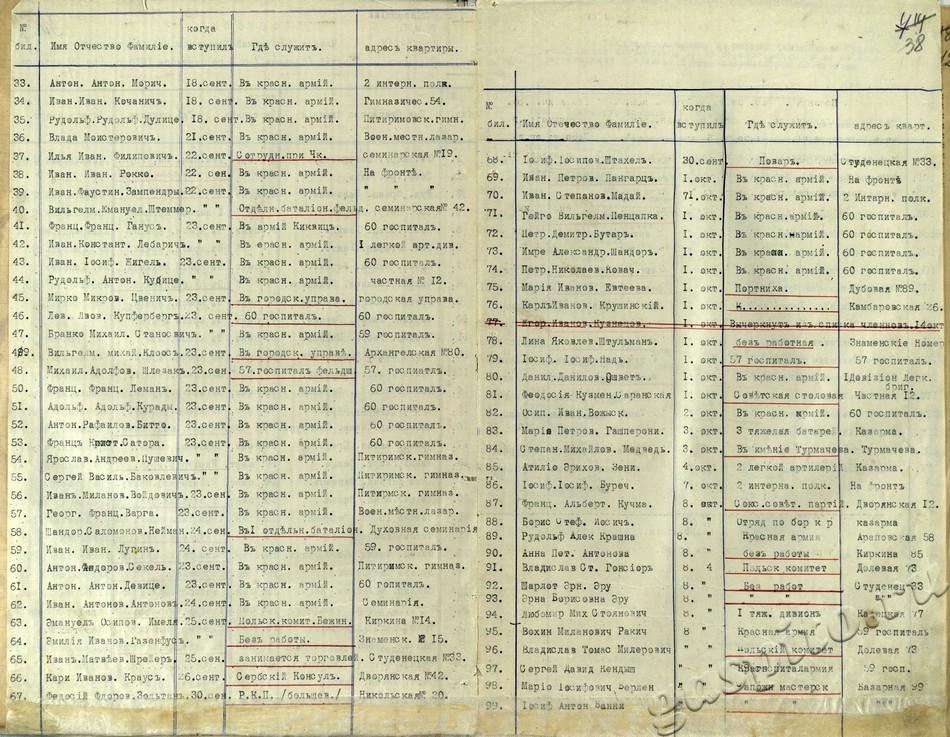 № бил. Имя Отчество Фамиліе. когда вступилъ Гдѣ служитъ. адресъ квартиры.
33. Антон. Антон. Морич. 18.сент. Въ красн. армій. 2 интерн. полк.
34. Иван.Иван. Кочаничъ. 18. сент. Въ красн. армій. Гимназичес.54.
35. Рудольф.Рудольф.Дулице. 18. сент. Въ красн. армій. Питиримовск.гимн.
36. Влада Моистеровичъ. 21.сент. Въ красн. армій. Воен.местн.лазар.
37. Илья Иван. Филиповичъ. 22.сент. Сотрудн.при Чк. семинарская №19.
38. Иван. Иван. Рокко. 22. сен. Въ красн. армій. На фронтѣ.
39. Иван.Фаустин.Зампендры. 22.сент. Въ красн. армій. " " "
40. Вильгелм.Емануел.Штеммер. " " Отдѣлн.баталіон.фельд. семинарская№ 42.
41. Франц.Франц. Ганусъ. 23.сент. Въ армій Киквицъ. 60 госпиталъ.
42. Иван.Констант. Лебаричъ. " " Въ ерасн. армій. I легкой арт.див.
43. Иван. Іосиф. Жигель. 23.сент. Въ красн. армій. 60 госпиталъ.
44. Рудольф. Антон. Кубице. " " Въ красн. армій. частная № 12.
45. Мирко Микров. Цвеничъ. 23.сент. Въ городск.управа. городская управа.
46. Лев. Лвов. Купфербергъ. 23. сент. 60 госпиталъ. 60 госпиталъ.
47. Бранко Михаил. Станосвичъ. " " Въ красн. армій. 59 госпиталъ.
49. Вильгелм. михай.Клоосъ. 23.сент. Въ городск. управѣ. Архангелская №80.
48. Михаил.Адолфов. Шлезакъ. 23.сен. 57.госпиталъ фельдш. 57. госпиатлъ.
50. Франц. Франц. Леман. 23.сент. Въ красн. армій. 60 госпиталъ.
51. Адольф. Адольф.Курады. 23.сент. Въ красн. армій. 60 госпиталъ.
52. Антон.Рафаилов.Битто. 23.сент. Въ красн. армій. 60 госпиталъ.
53. Францъ Крист.Сатора. 23.сент. Въ красн. армій. 60 госпиталъ.
54. Ярослав.Андреев.Пушевич. " " Въ красн. армій. Питиримск.гимназ.
55. Сергей Василь.Баковлевичъ. " " Въ красн. армій. Питиримск. гимназ.
56. Иванъ.Миланов.Войдовичъ. 23.сен. Въ красн. армій. Питирмск. гимназ.
57. Георг. Франц.Варга. 23.сент. Въ красн. армій. Воен.мѣстн.лазар.
58. Шандор.Саломонов.Нейман. 24.сен. ВъI отдѣльн.баталіон. Духовная семинарія
59. Иван. Иван. Лупинъ. 24. сент. Въ красн. армій. 59. госпиталъ.
60. Антон.Федоров.Секелъ. 23.сент. Въ красн. армій. Питиримск. гимназ.
61. Антон. Антон.Девице. 23.сент. Въ красн. армій. 60 гопиталъ.
62. Иван. Антонов.Антоновъ. 24.сент. Въ красн. армій. Семинарія.
63. Эмануел Осипов. Имеля. 25.сент. Польск.комит.Бежин. Киркина №14.
64. Эмилія Иванов.Газанфусъ. " " Безъ работы. Знаменск. № 15.
65. Иванъ.Матвѣев.Шрейеръ. 25.сен. занимается торговлей. Студенецкая №33.
66. Кари Иванов. Краусъ. 26.сент. Сербскій Консулъ. Дворянская №42.
67. Федосій Флоров.Зольтанъ. 30.сен. Р.К.П. /большев./ Никольская№ 20.
38
№ бил. Имя Отчество Фамиліе. когда вступилъ Гдѣ служитъ. адресъ кварт.
68. Іосиф.Іосипоч.Штахел. 30.сент Поваръ. Студенецкая №33.
69. Иван. Петров. Пангарцъ. I.окт. Въ красн. армій. На фронтѣ
70. Иван. Степанов.Мадай. 7I.окт. Въ красн. армій. 2 Интарн. полк.
71. Гейго Вильгелм.Пенцапка. I. окт. Въ красн.армій. 60 госпиталъ.
72. Петр.Демитр.Бутар. I. окт. Въ красн.нармій. 60 госпиталъ.
73. Имре Александр.Шандоръ. I. окт. Въ красн. армій. 60 госпиталъ.
74. Петр.Николаев.Ковач. I. окт. Въ красн. армій. 60 госпиталъ.
75. Марія Иванов. Евтеева. I. окт. Портниха. Дубовая №89.
76. КарлъИванов. Крушинскій. I. окт Камбаровская 26.
77. Егор.Иванов.Кузнецов. I. окт. Вычеркнут изъ списка членновъ.I4окт
78. Лина Яковлев.Штульман. I. окт безъ работная. Знаменскіе Номер
79. Іосиф. Іосиф.Надь. I. окт 57 госпиталъ. 57 госпиталъ.
80. Данил.Данилов.Ошветъ. I. окт. Въ красн. армій. IДевізіон Легк. бриг.
81. Феодосія Кузмен.Саранская I. окт Совѣтская столовая Частная 12.
82. Осип. Иван.Вожнск. 2. окт Въ красн. армій. 60 госпиталъ.
83. Марія Петров. Гашперони. 3. окт. 3 тяжелая батарея. Казарма.
84. Степан.Михайлов. Медведь. 3. окт. Въ имѣніе Турмачева. Турмачева.
85. Атиліо Эрихов. Зени. 4.окт. 2 легкой артилерій Казарма.
86. Іосиф.Іосиф. Буреч. 7. окт 2 интерна. полк. На фронтъ
87. Франц. Альберт. Кучма. 8. окт Союз.совѣт. партій. Дворянская 12.
88. Борис Стеф. Иосичъ. 8. " Отряд по бор к р казарма
89. Рудольф Алек Крашна 8. " Красная армия Араповская 58
90. Анна Пет. Антонова 8. " безъ работы Киркина 85
91. Владислав Ст. Гонсіор 8. 4 Польск комитет Долевая 73
92. Шарлот Эрн. Эру 8. " Без работ Студенец 33
93. Эрна Борисовна Эру 8. " " " " "
94. Любомар Мих Стоянович 8 " I тяж. дивион 77
95. Вохин Миланович Ракич 8 " Красная Армия 59 госпиталь
96. Владислав Томас Милерович " " Польскій комитет Долевая 73
97. Сергей Давид Кендыш " " 59 госп.
98. Маріо Іосифович Ферлен " " Сапожн мастерск Базарная 99
99. Іосиф Антон Банни " " " "